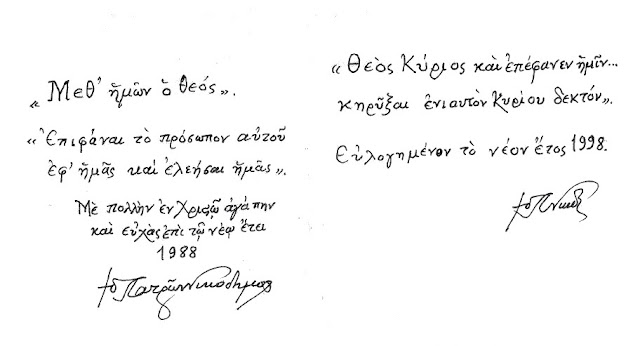 « Μεθ' ἡμῶν ὁ θεός».
«Ἐπιφάναι τὸ πρόσωπον αὐτοῦ
ἐφ' ἡμᾶς καὶ ἐλεήσαι ἡμᾶς».
Μὲ πολλὴν ἐν Χριστῷ ἀγάπην
καὶ εὐχὰς ἐπὶ τῷ νέῳ ἔτει
1988
† ὁ Πατρῶν Νικόδημος
« Θεὸς Κύριος καὶ ἐπέφανεν ἡμῖν...
κηρῦξαι ἐνιαυτὸν Κυρίου δεκτόν».
Εὐλογημένον τὸ νέον ἔτος 1998.